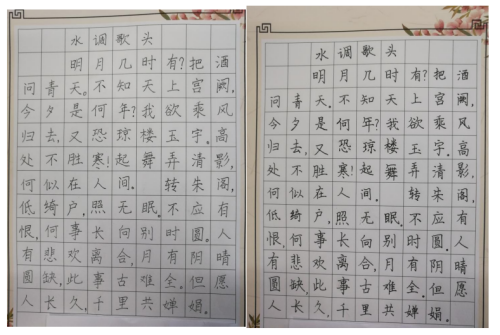 水调歌头
明月几时有?把酒
问青天。不知天上宫阙,
今夕是何年?我欲乘风
归去,又恐琼楼玉宇。高
处不胜寒!起舞弄清影,
何似在人间。 转朱阁,
低绮户,照无眠。不应有
恨,何事长向别时圆。人
有悲欢离合,月有阴晴
圆缺,此事古难全。但愿
人长久,千里共婵娟。
水调歌头
明月几时有?把酒
问青天。不知天上宫阙,
今夕是何年?我欲乘风
归去,又恐琼楼玉宇。高
处不胜寒!起舞弄清影,
何似在人间。 转朱阁,
低绮户,照无眠。不应有
恨,何事长向别时圆。人
有悲欢离合,月有阴晴
圆缺,此事古难全。但愿
人长久,千里共婵娟。